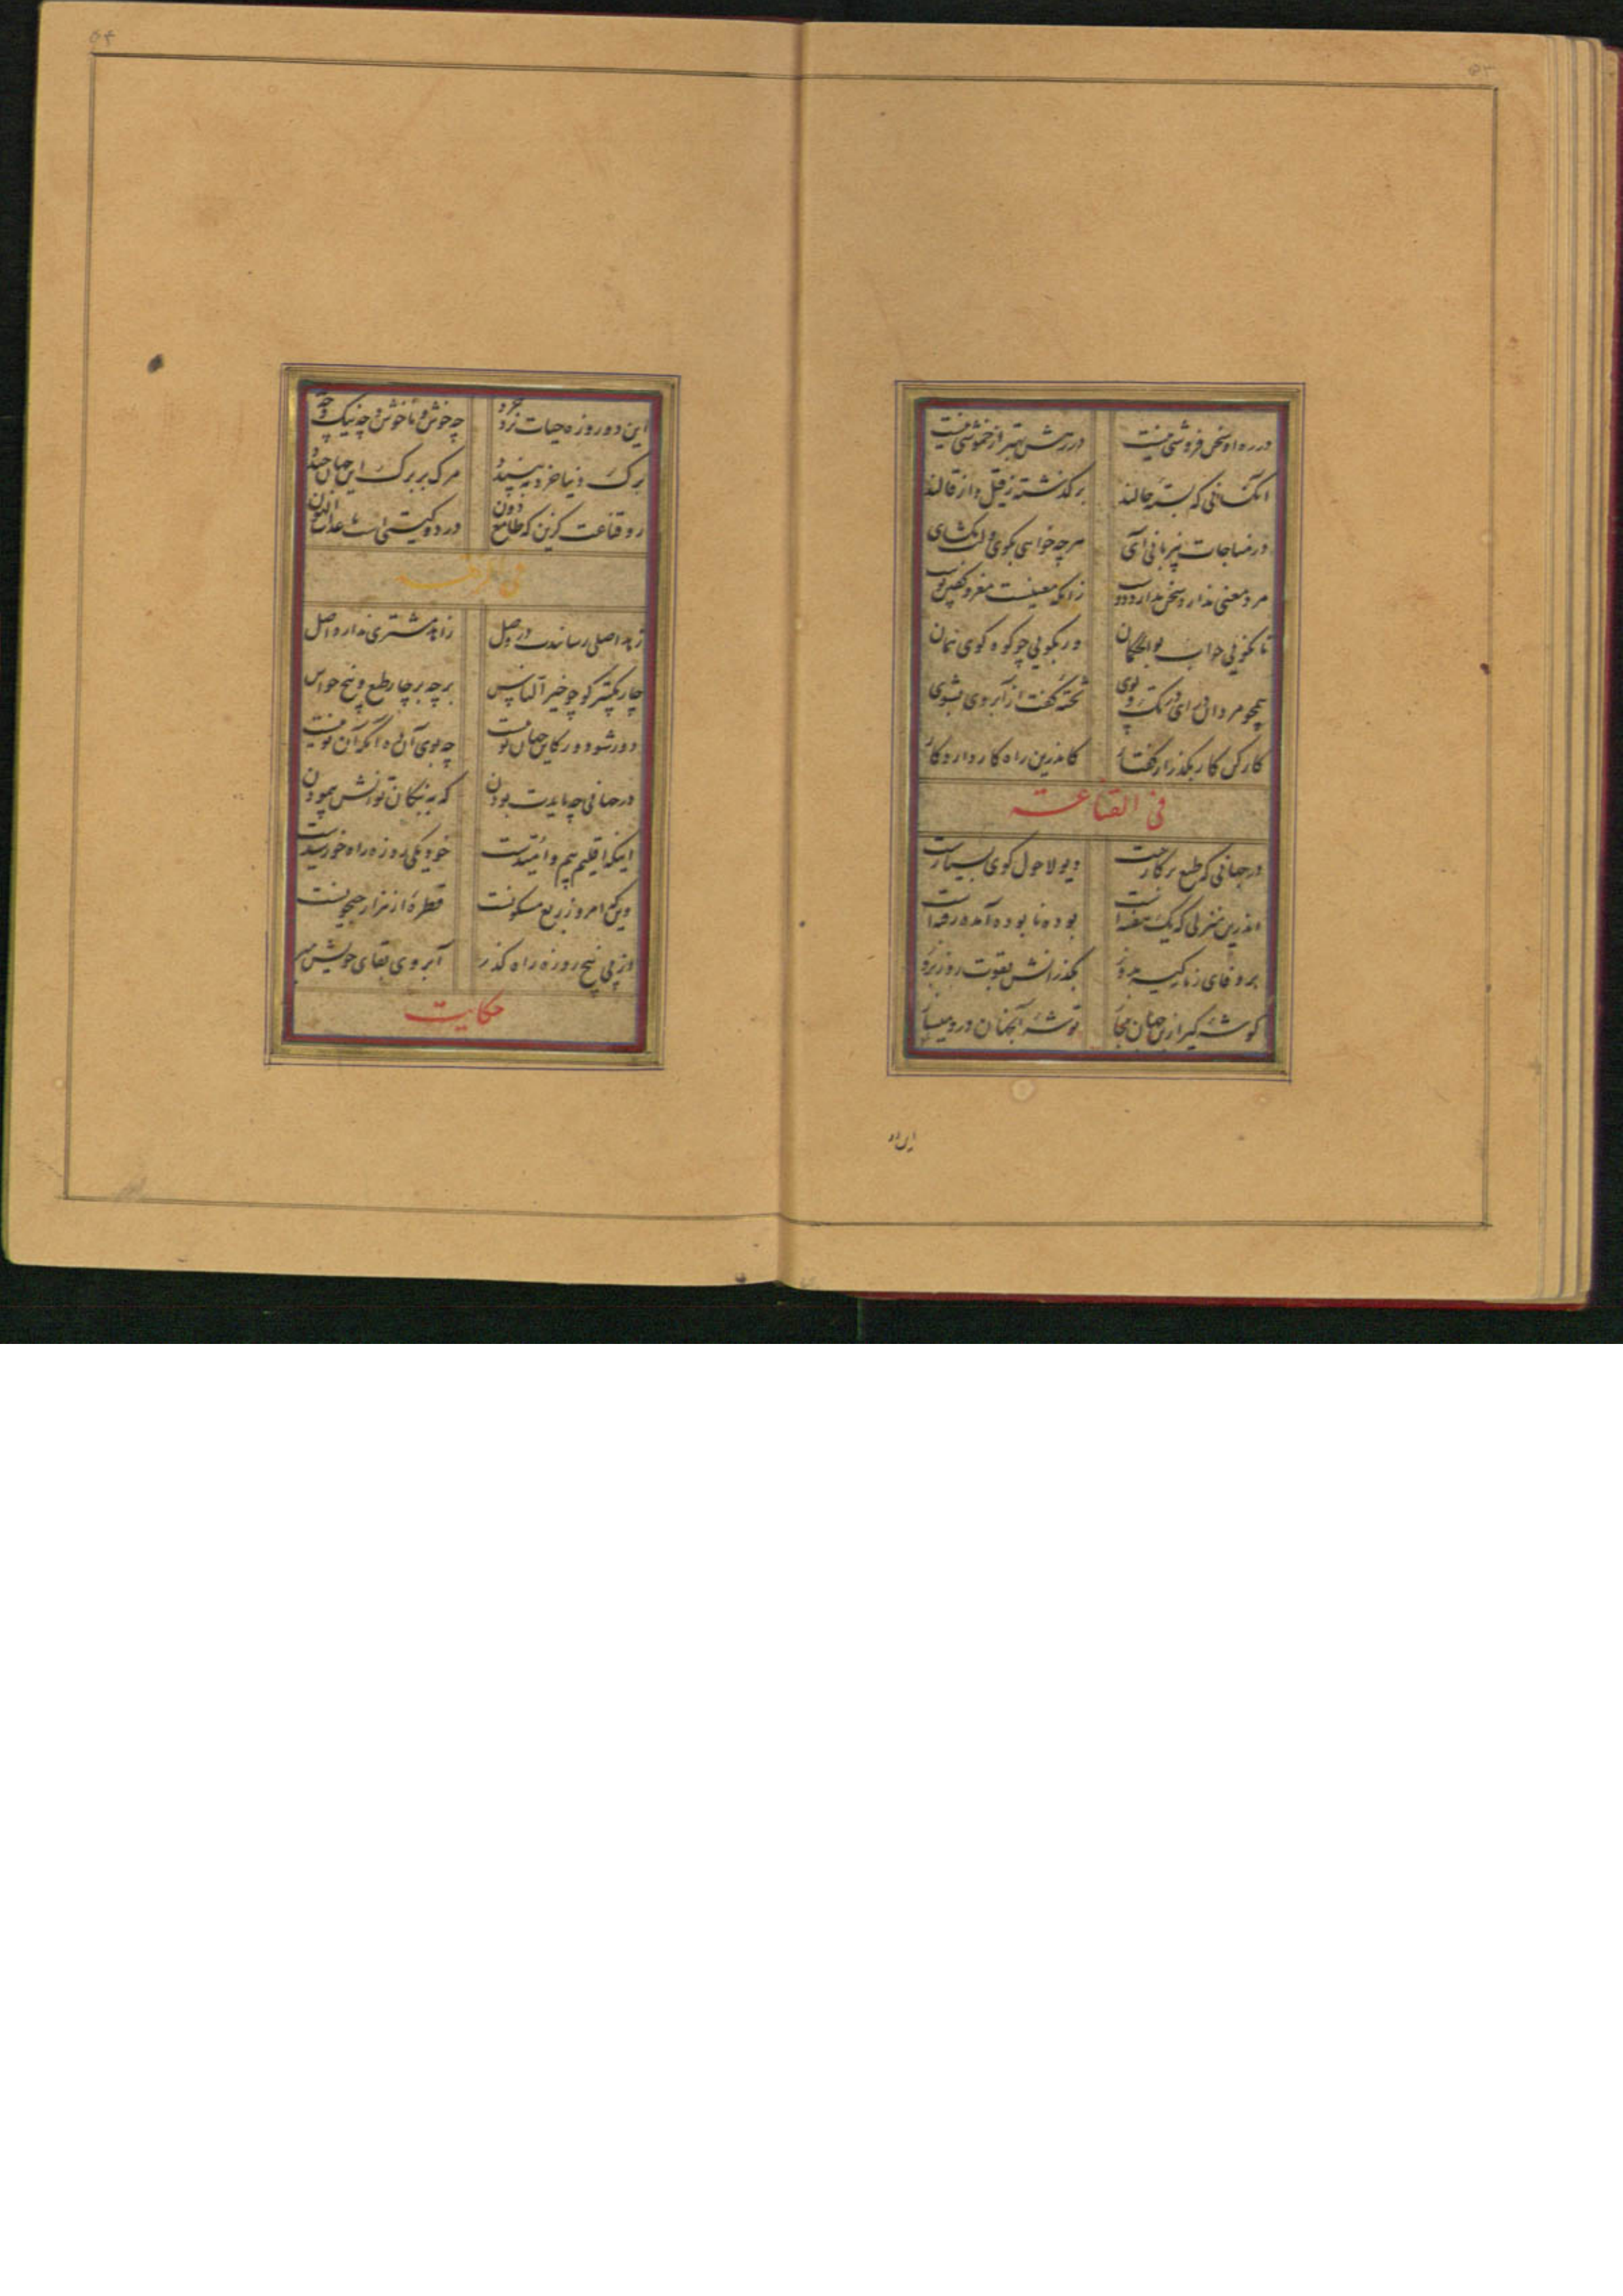 ۵۳
در ره او سخن فروشی نیست در رهش بهتر از خموشی نیست
آنکسانی که بستهٔ حالند برگذشته ز قیل و از قالند
در مناجات بی‌زبانی آی هرچه خواهی بگوی و لب مگشای
مرد معنی ندارد و سخن
تا نگویی جواب
ور بگویی چو کوه گوی نهان
همچو مردان درآی در تک و پوی تختهٔ گفت از آبروی بشوی
کار کن کار بگذر از گفتار کاندرین راه کار دارد کار
فی القناعة
در جهانی که طبع بر کارست دیو لاحول گوی بسیارست
اندرین منزلی که یک هفته‌ست بوده نابوده آمده رفته‌ست
بر وفای زمانه کیسه مدوز بگذرانش بقوت روز بروز
گوشهٔ گیر ازین جهان مجاز توشهٔ آنجهان درو میساز
این دو
۵۴
این دو روزه حیات نزد خرد چه خوش و ناخوش و چه نیک و چه بد
برگ دنیا خرد نپسندد مرگ بر برگ این جهان خندد
رو قناعت گزین که طامع دون در دو گیتی است
فی
زهد اصلی رساندت در وصل زاهد مشتری ندارد اصل
چار تکبیر گو چو خیر الناس بر چه بر چار طبع و پنج حواس
دور شو دور کاین جهان تو نیست چه بوی آن ده آنکه آن تو نیست
در جهانی چه بایدت بودن که به پنگان توانش پیمودن
اینکه اقلیم بیم و امیدست خود یکی روزه راه خورشیدست
وین که امروز ربع مسکونست قطرهٔ از هزار جیحونست
از پی پنج روزه راه گذر آبروی بقای خویش مبر
حکایت